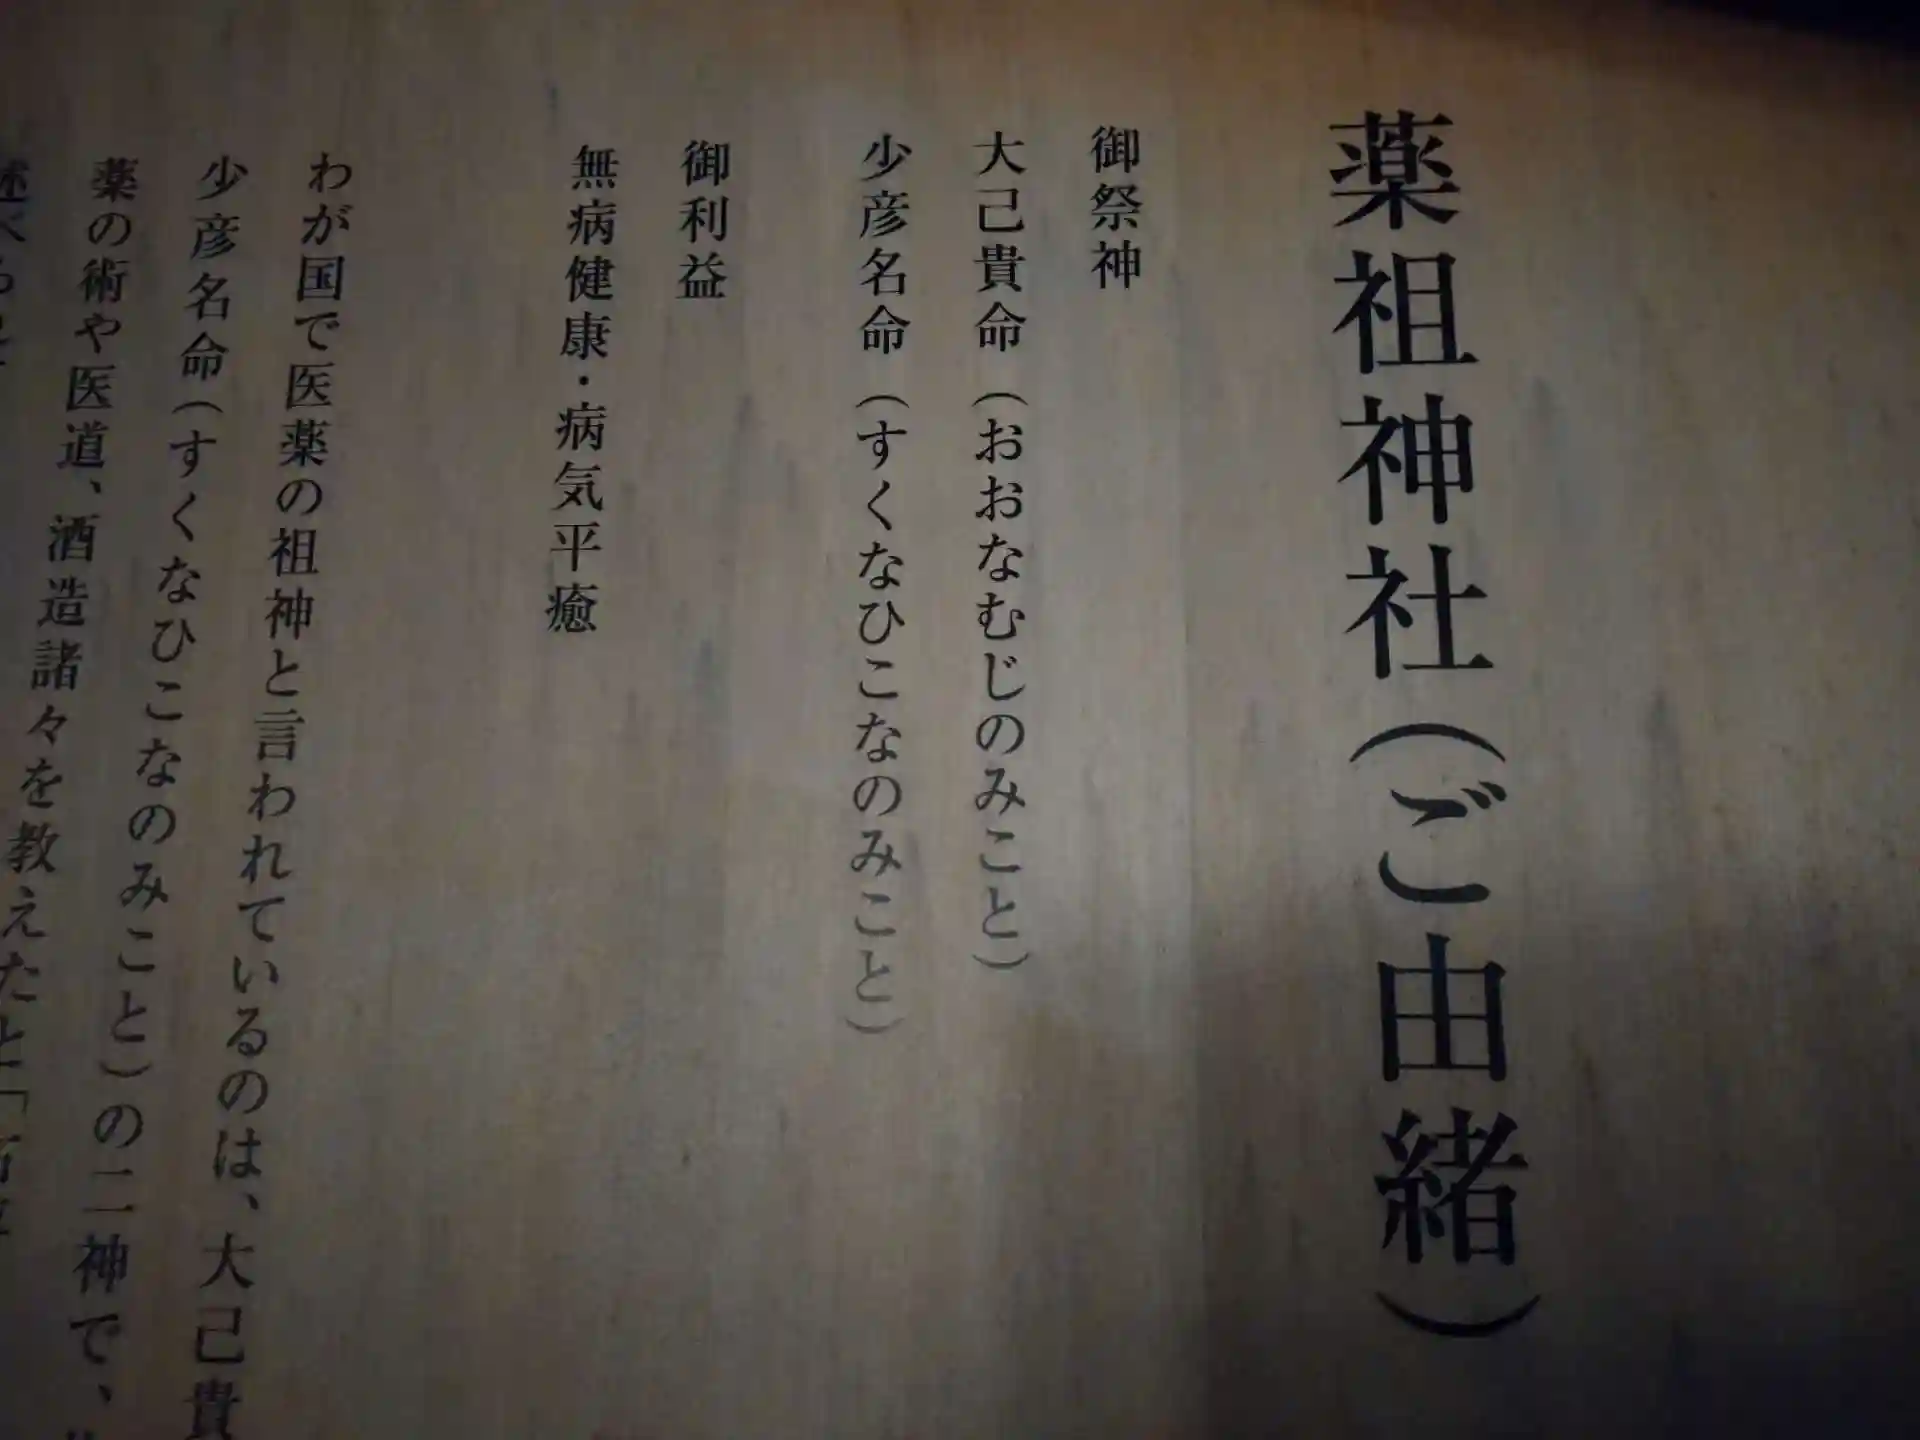 薬祖神社(ご由緒)
御祭神
大己貴命(おおなむじのみこと)
少彦名命(すくなひこなのみこと)
御利益
無病健康・病気平癒
わが国で医薬の祖神と言われているのは、大己貴
少彦名命(すくなひこなのみこと)の二神で、
薬の術や医道、酒造諸々を教えたと「
述べられ